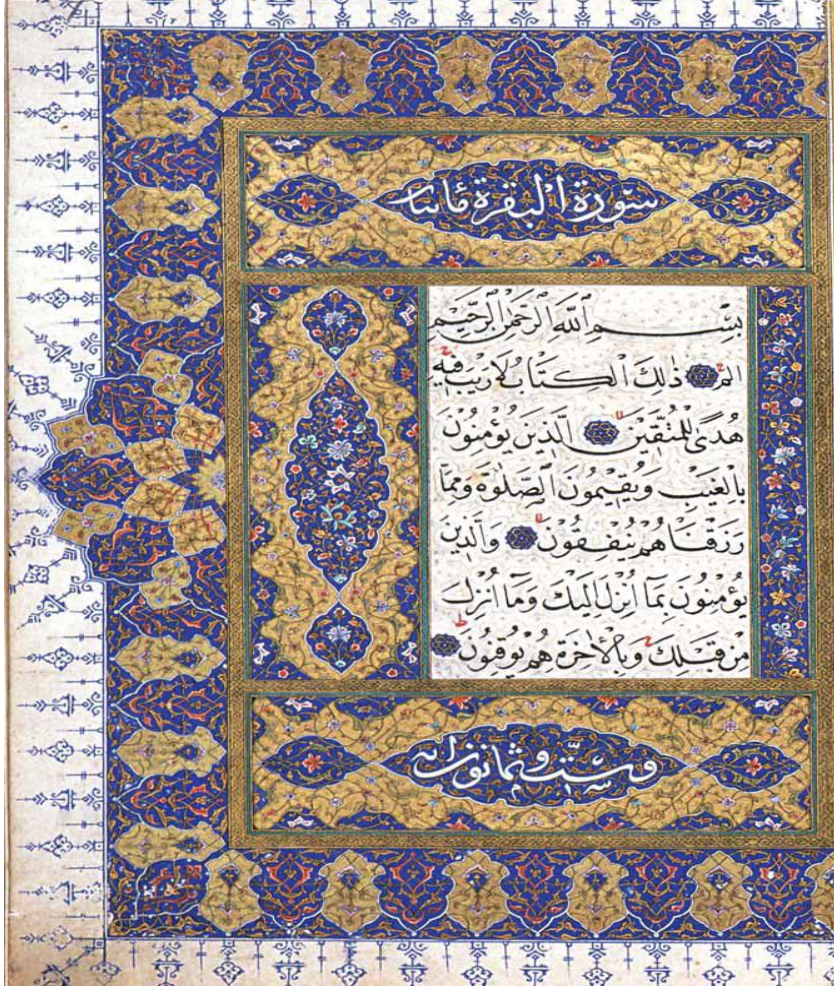 سورة البقرة مائتا
بِسْمِ اللّٰهِ الرَّحْمٰنِ الرَّحِيمِ
الم ذٰلِكَ الْكِتَابُ لَا رَيْبَ فِيهِ
هُدًى لِلْمُتَّقِينَ الَّذِينَ يُؤْمِنُونَ
بِالْغَيْبِ وَيُقِيمُونَ الصَّلٰوةَ وَمِمَّا
رَزَقْنَاهُمْ يُنْفِقُونَ وَالَّذِينَ
يُؤْمِنُونَ بِمَا أُنْزِلَ إِلَيْكَ وَمَا أُنْزِلَ
مِنْ قَبْلِكَ وَبِالْاٰخِرَةِ هُمْ يُوقِنُونَ
وست وثمانون اية